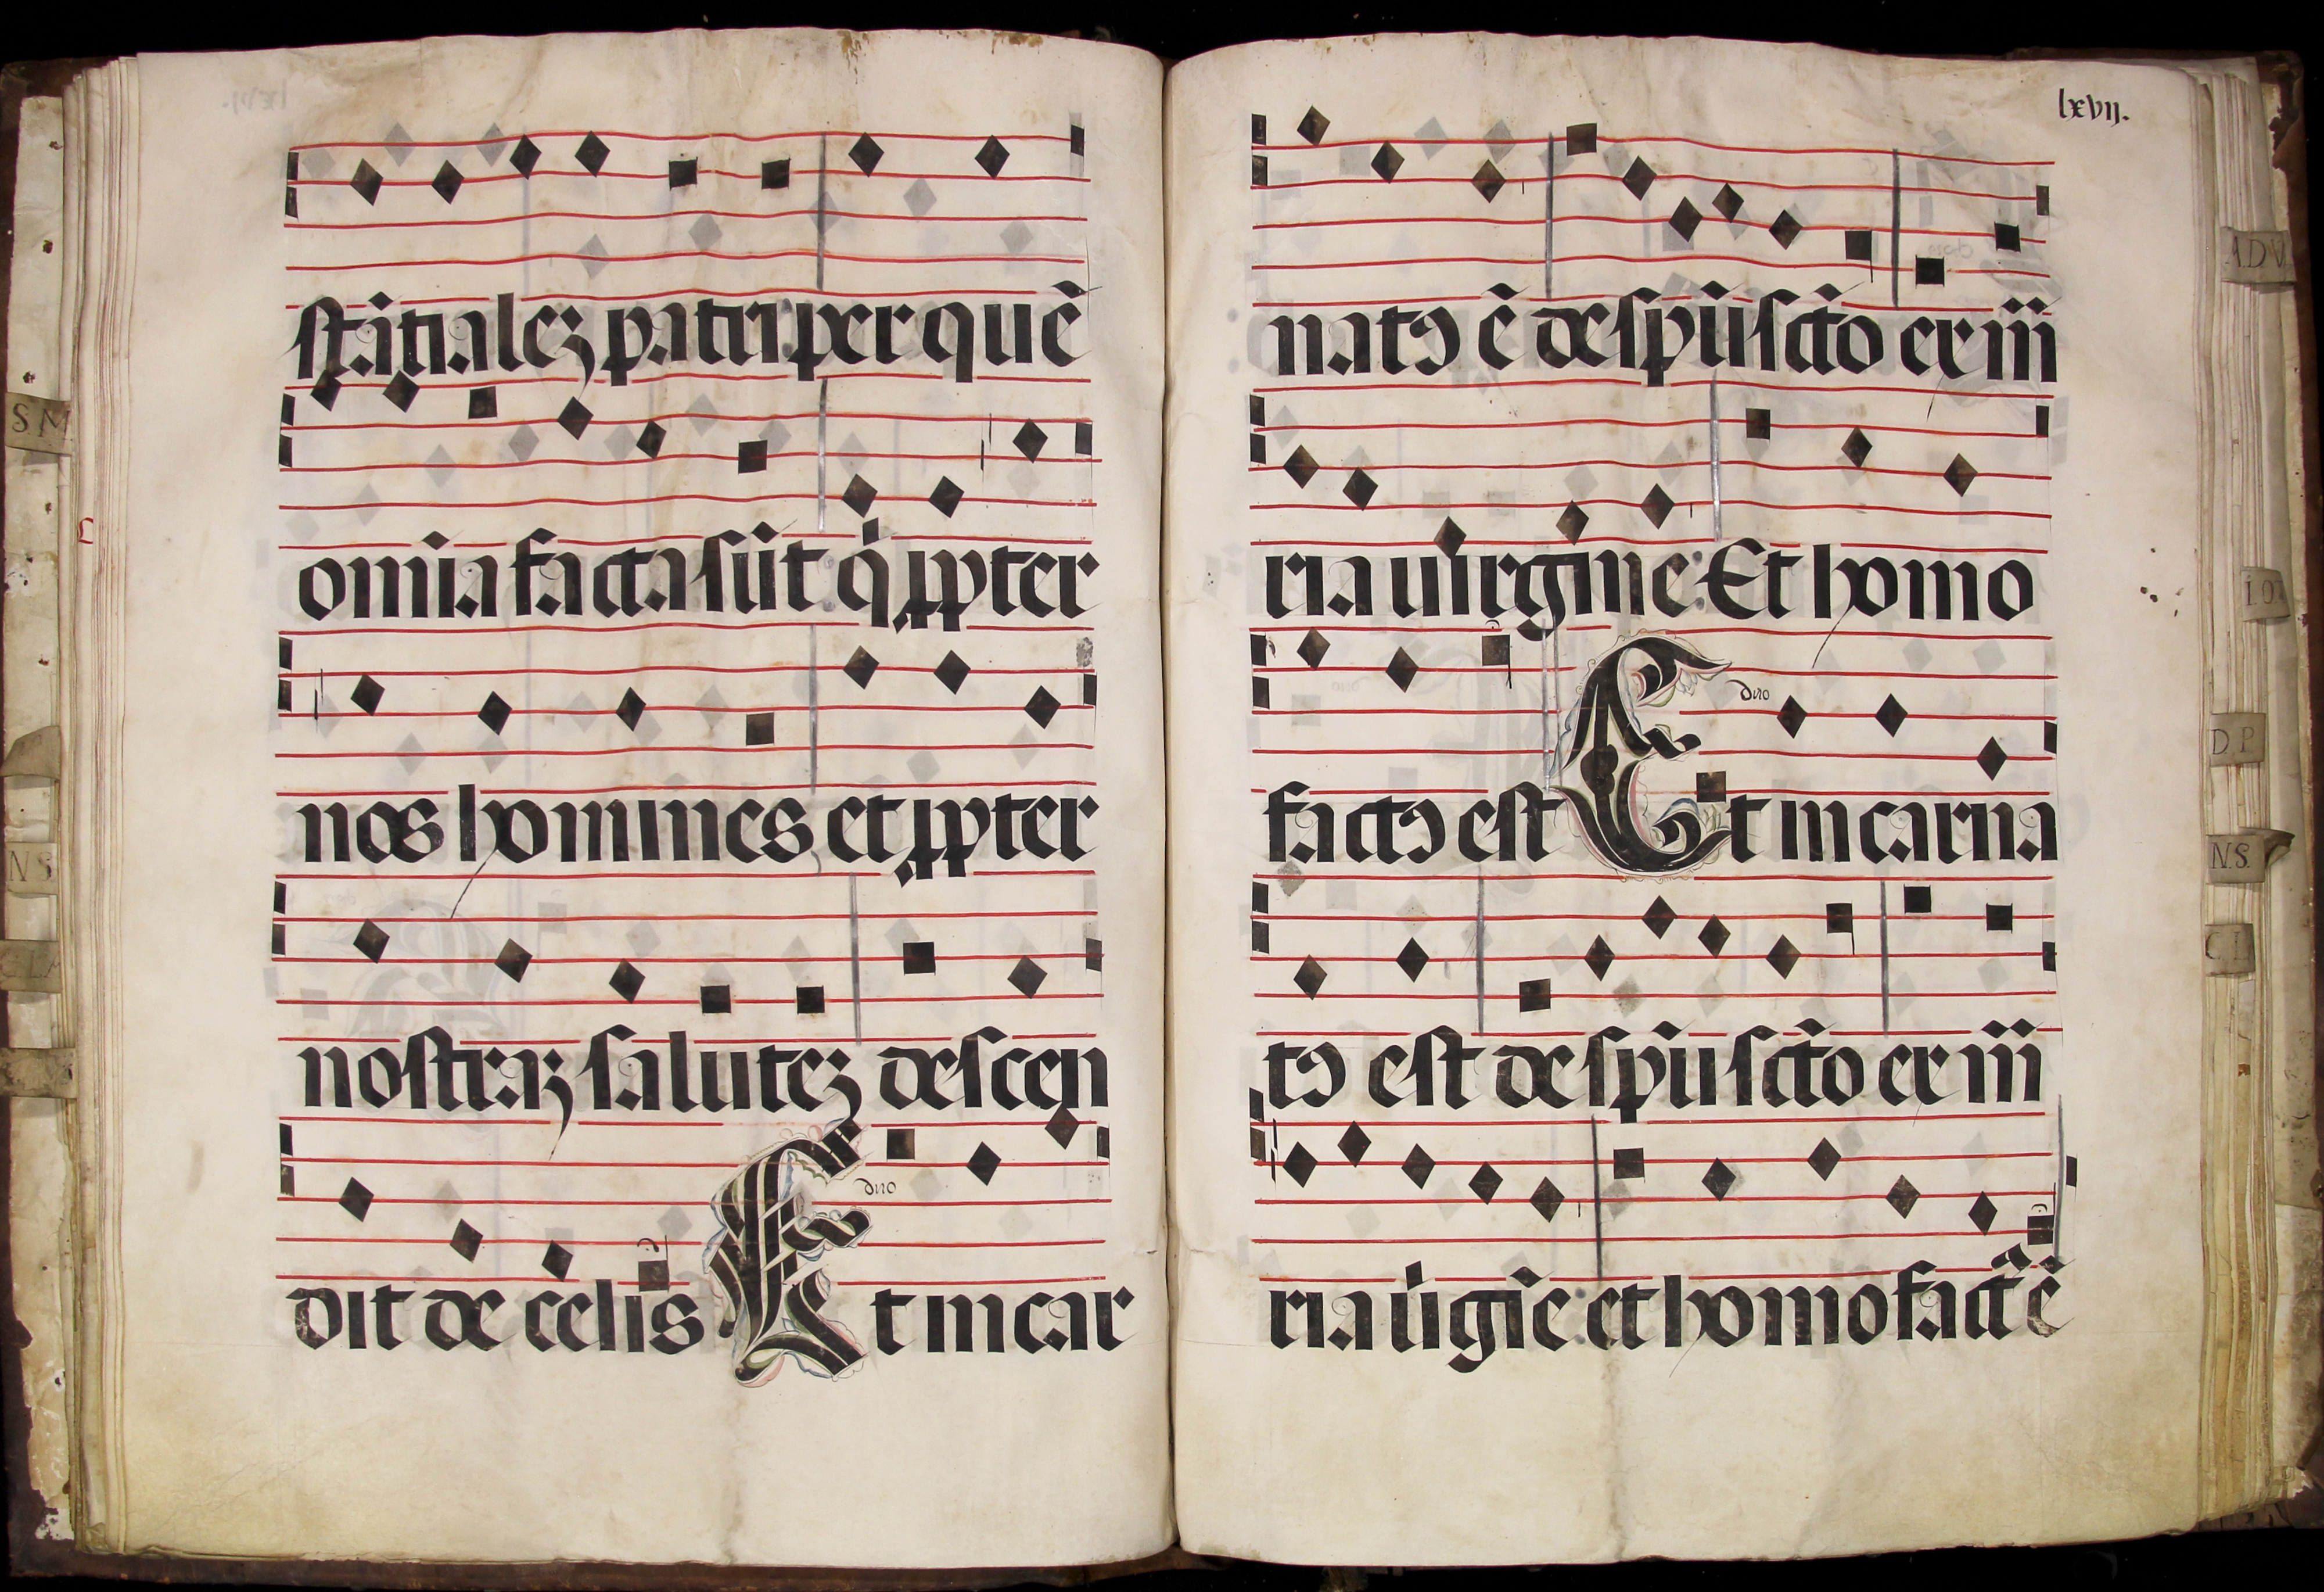 stãtialeʒ patri per quẽ
om̃ia facta sũt q̇ ꝓpter
nos homines et ꝓpter
nostraʒ saluteʒ descen
dit de celis Et incar
duo
lxvij.
natꝯ ẽ de spũ sct̃o ex m̃
ria uirgine: Et homo
factꝯ est Et incarna
duo
tꝯ est de spũ scto ex m̃
ria u̇igĩe: et homo fact᷒ ẽ
S M
N S
A.D.V.
D P
N.S.
C I